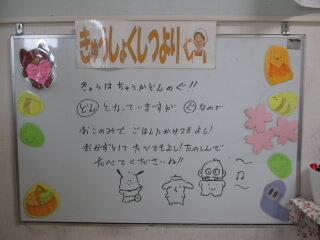 きゅうしょくしつより
きょうはちゅうかどんのぐ!!
どんとなっていますが ぐなので
おこのみで、ごはんにかけてもよし!
おかずとしてたべてもよし!たのしんで
たべてくださいね!!